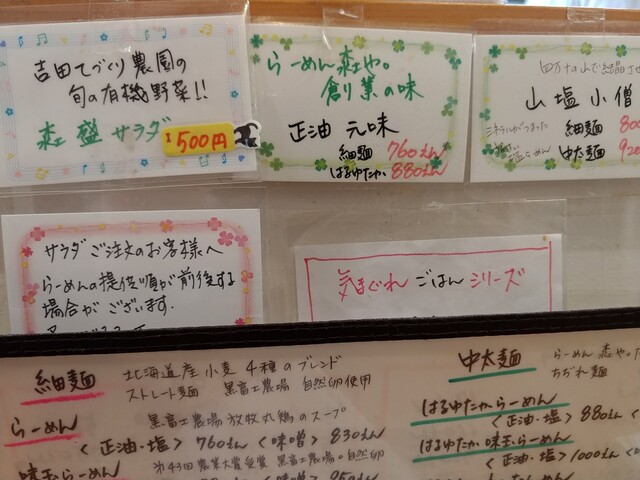 吉田てづくり農園の
旬の有機野菜!!
森盛サラダ
¥500円
らーめん森や。
創業の味
正油 元味
細麺 760えん
はるゆたか 880えん
山塩小僧
細麺
中太麺
サラダご注文のお客様へ
らーめんの提供順が前後する
場合がございます.
気まぐれごはんシリーズ
細麺 北海道産小麦4種のブレンド
ストレート麺 黒富士農場 自然卵使用
らーめん 黒富士農場放牧丸鶏のスープ
<正油・塩> 760えん <味噌> 830えん
味玉らーめん 第43回農業大賞受賞 黒富士農場の自然卵
中太麺
ちぢれ麺
はるゆたからーめん
<正油・塩> 880えん
はるゆたか味玉らーめん
<正油・塩> 1000えん